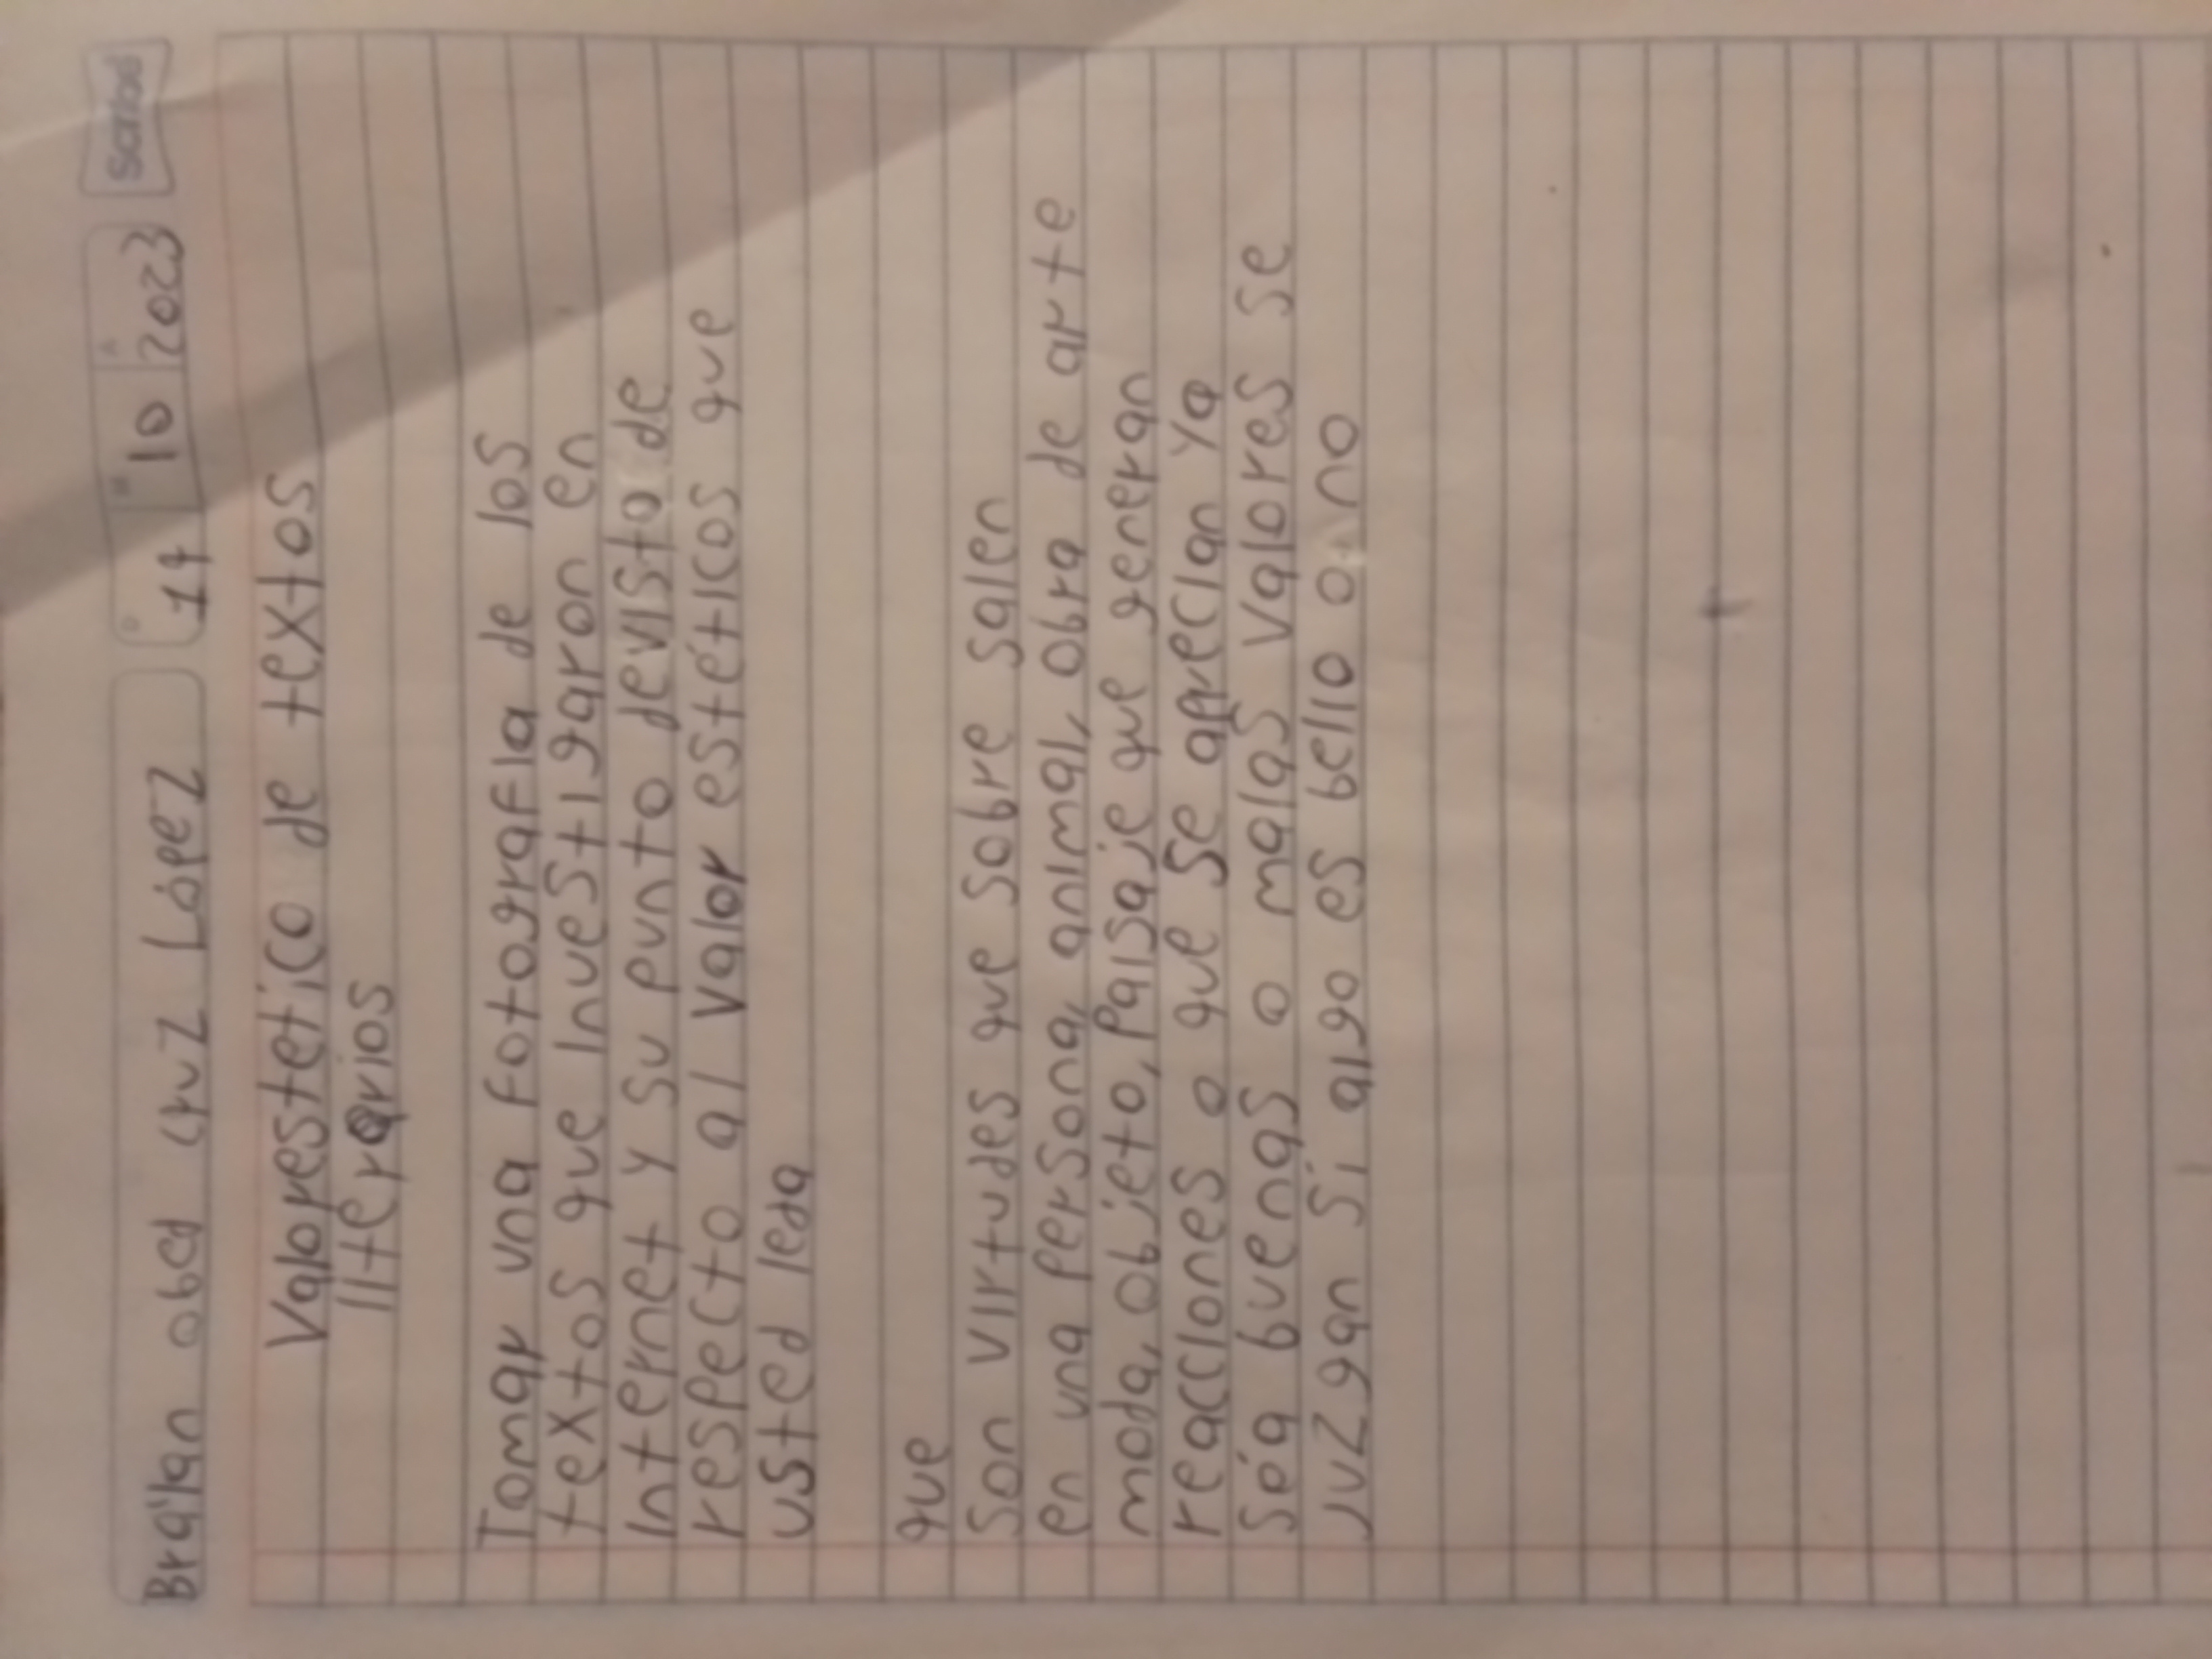 Braian obed cruz López 14 10 2023 Scribe
Valor estético de textos
literarios
Tomar una fotografia de los
textos que investigaron en
internet y su punto devisto de
respecto al valor estéticos que
usted leda
que
Son virtudes que sobre salen
en una persona, animal, obra de arte
moda, objeto, paisaje que generan
reacciones o que se aprecian ya
séa buenas o malas valores se
juzgan si algo es bello o no